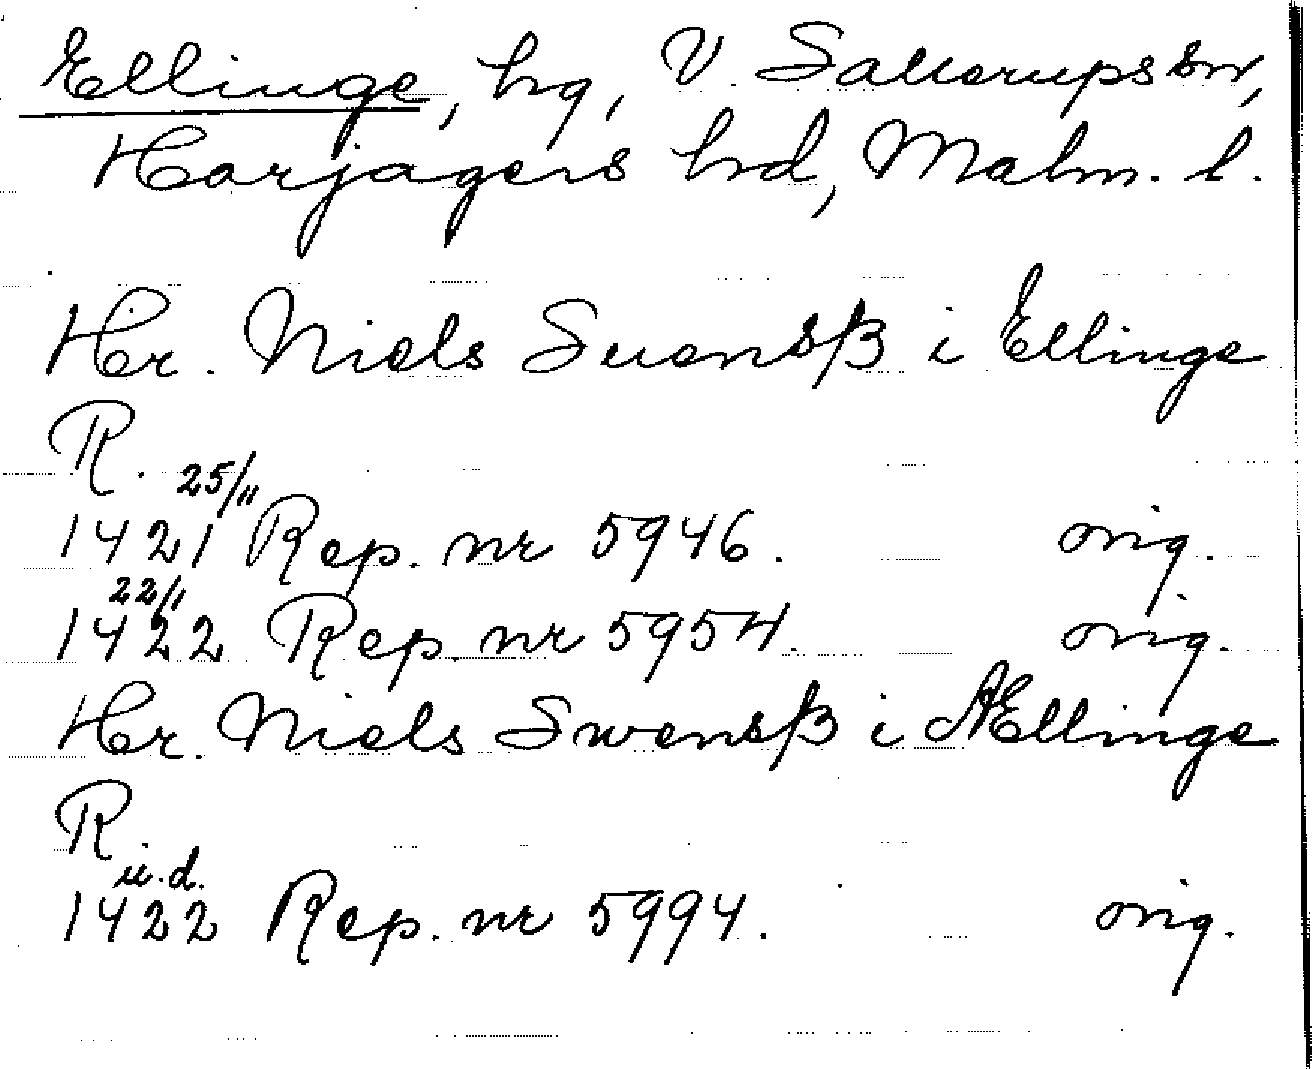 Ellinge, hg, V. Sallerups sn,
Harjagers hd, Malm. l.
Hr. Niels Suensß i Ellinge
R. 25/11
1421 Rep. nr 5946. orig.
22/1
1422 Rep. nr 5954. orig.
Hr. Niels Swensß i AEllinge
R
u.d.
1422 Rep. nr 5994. orig.